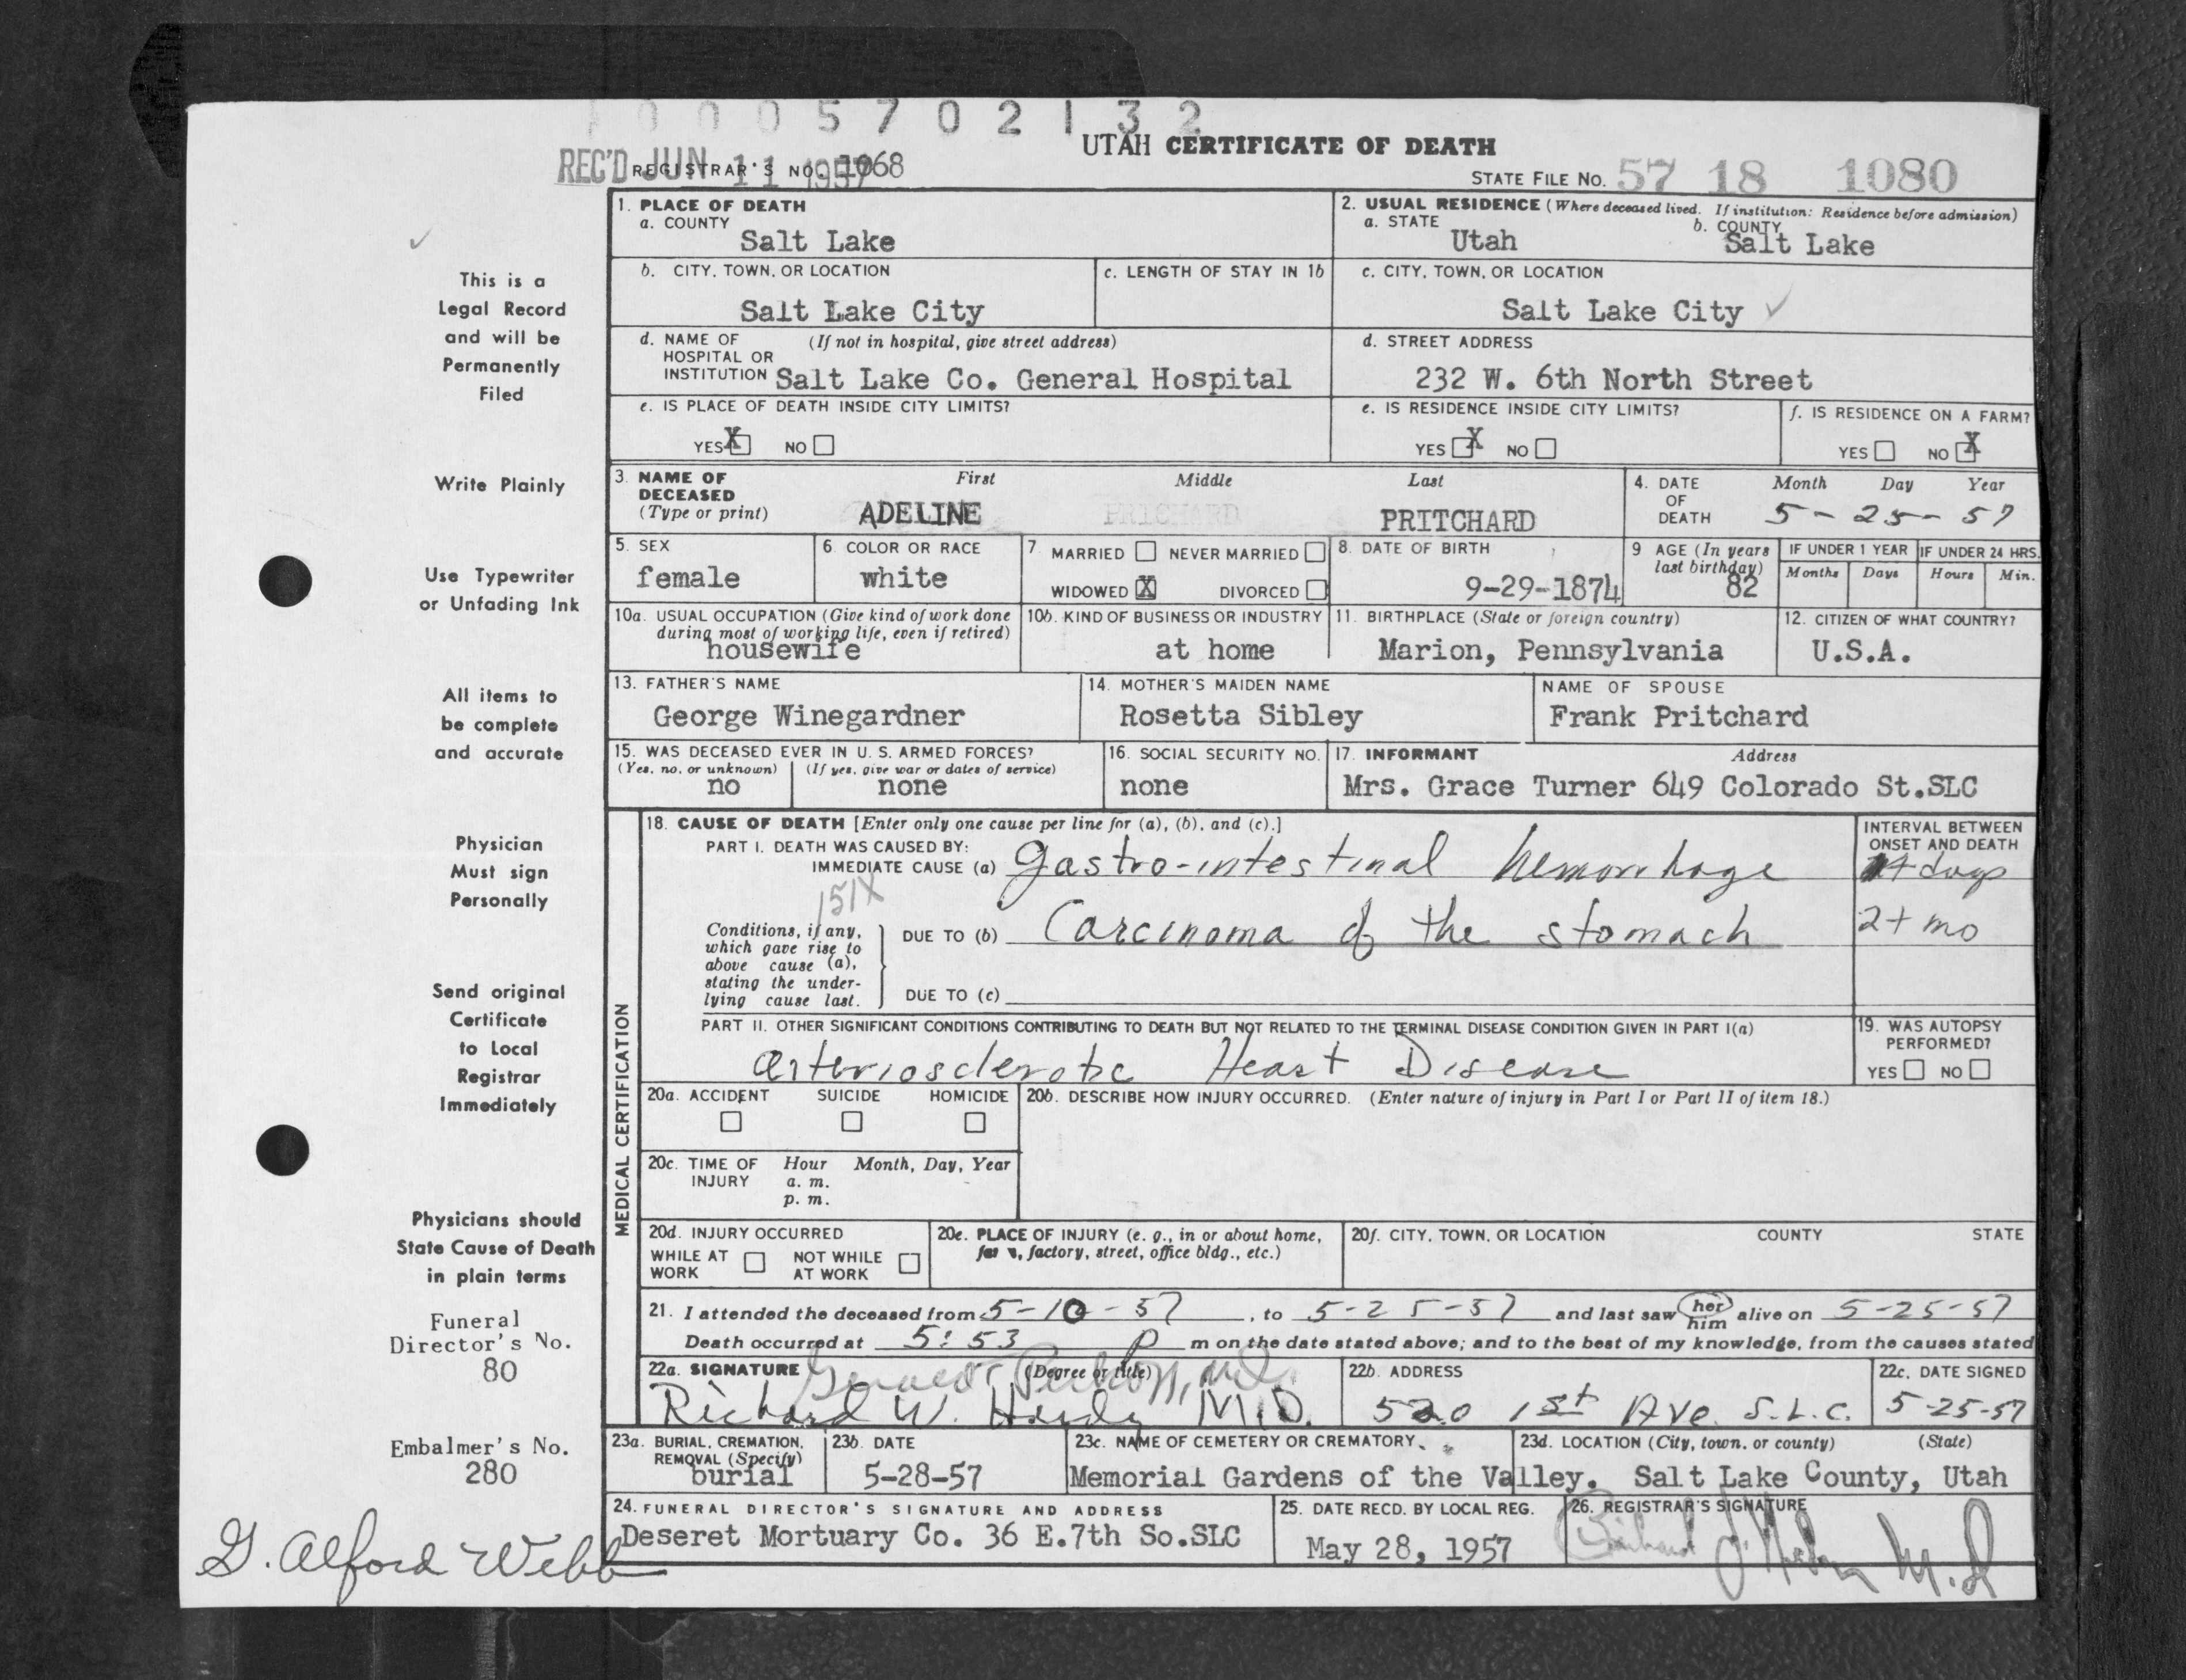 0005702132
UTAH CERTIFICATE OF DEATH
REC'D JUN 11 1957
REGISTRAR'S NO. 1068
STATE FILE NO. 57 18 1080
This is a
Legal Record
and will be
Permanently
Filed
Write Plainly
Use Typewriter
or Unfading Ink
All items to
be complete
and accurate
Physician
Must sign
Personally
Send original
Certificate
to Local
Registrar
Immediately
Physicians should
State Cause of Death
in plain terms
Funeral
Director's No.
80
Embalmer's No.
280
G. Alford Webb
1. PLACE OF DEATH
a. COUNTY
Salt Lake
2. USUAL RESIDENCE (Where deceased lived. If institution: Residence before admission)
a. STATE
Utah
b. COUNTY
Salt Lake
b. CITY, TOWN, OR LOCATION
Salt Lake City
c. LENGTH OF STAY IN 1b
c. CITY, TOWN, OR LOCATION
Salt Lake City ✓
d. NAME OF (If not in hospital, give street address)
HOSPITAL OR
INSTITUTION Salt Lake Co. General Hospital
d. STREET ADDRESS
232 W. 6th North Street
e. IS PLACE OF DEATH INSIDE CITY LIMITS?
YES X NO
e. IS RESIDENCE INSIDE CITY LIMITS?
YES X NO
f. IS RESIDENCE ON A FARM?
YES NO X
3. NAME OF
DECEASED
(Type or print)
First Middle Last
ADELINE PRICHARD PRITCHARD
4. DATE
OF
DEATH
Month Day Year
5 - 25 - 57
5. SEX
female
6. COLOR OR RACE
white
7. MARRIED NEVER MARRIED
WIDOWED X DIVORCED
8. DATE OF BIRTH
9-29-1874
9 AGE (In years
last birthday)
82
IF UNDER 1 YEAR
Months Days
IF UNDER 24 HRS.
Hours Min.
10a. USUAL OCCUPATION (Give kind of work done
during most of working life, even if retired)
housewife
10b. KIND OF BUSINESS OR INDUSTRY
at home
11. BIRTHPLACE (State or foreign country)
Marion, Pennsylvania
12. CITIZEN OF WHAT COUNTRY?
U.S.A.
13. FATHER'S NAME
George Winegardner
14. MOTHER'S MAIDEN NAME
Rosetta Sibley
NAME OF SPOUSE
Frank Pritchard
15. WAS DECEASED EVER IN U. S. ARMED FORCES?
(Yes, no, or unknown) (If yes, give war or dates of service)
no none
16. SOCIAL SECURITY NO.
none
17. INFORMANT Address
Mrs. Grace Turner 649 Colorado St.SLC
MEDICAL CERTIFICATION
18. CAUSE OF DEATH [Enter only one cause per line for (a), (b), and (c).]
PART I. DEATH WAS CAUSED BY:
IMMEDIATE CAUSE (a) Gastro-intestinal hemorrhage
151X
INTERVAL BETWEEN
ONSET AND DEATH
days
Conditions, if any,
which gave rise to
above cause (a),
stating the under-
lying cause last.
DUE TO (b) Carcinoma of the stomach
2+ mo
DUE TO (c)
PART II. OTHER SIGNIFICANT CONDITIONS CONTRIBUTING TO DEATH BUT NOT RELATED TO THE TERMINAL DISEASE CONDITION GIVEN IN PART I(a)
Arteriosclerotic Heart Disease
19. WAS AUTOPSY
PERFORMED?
YES NO
20a. ACCIDENT SUICIDE HOMICIDE
20b. DESCRIBE HOW INJURY OCCURRED. (Enter nature of injury in Part I or Part II of item 18.)
20c. TIME OF
INJURY
Hour Month, Day, Year
a. m.
p. m.
20d. INJURY OCCURRED
WHILE AT
WORK
NOT WHILE
AT WORK
20e. PLACE OF INJURY (e. g., in or about home,
farm, factory, street, office bldg., etc.)
20f. CITY, TOWN, OR LOCATION COUNTY STATE
21. I attended the deceased from 5-10-57, to 5-25-57 and last saw her him alive on 5-25-57
Death occurred at 5:53 P m on the date stated above; and to the best of my knowledge, from the causes stated
22a. SIGNATURE (Degree or title)
Richard W. Hardy M.D.
22b. ADDRESS
520 1st Ave. S.L.C.
22c. DATE SIGNED
5-25-57
23a. BURIAL, CREMATION,
REMOVAL (Specify)
burial
23b. DATE
5-28-57
23c. NAME OF CEMETERY OR CREMATORY
Memorial Gardens of the Valley.
23d. LOCATION (City, town, or county) (State)
Salt Lake County, Utah
24. FUNERAL DIRECTOR'S SIGNATURE AND ADDRESS
Deseret Mortuary Co. 36 E.7th So.SLC
25. DATE RECD. BY LOCAL REG.
May 28, 1957
26. REGISTRAR'S SIGNATURE
M.D